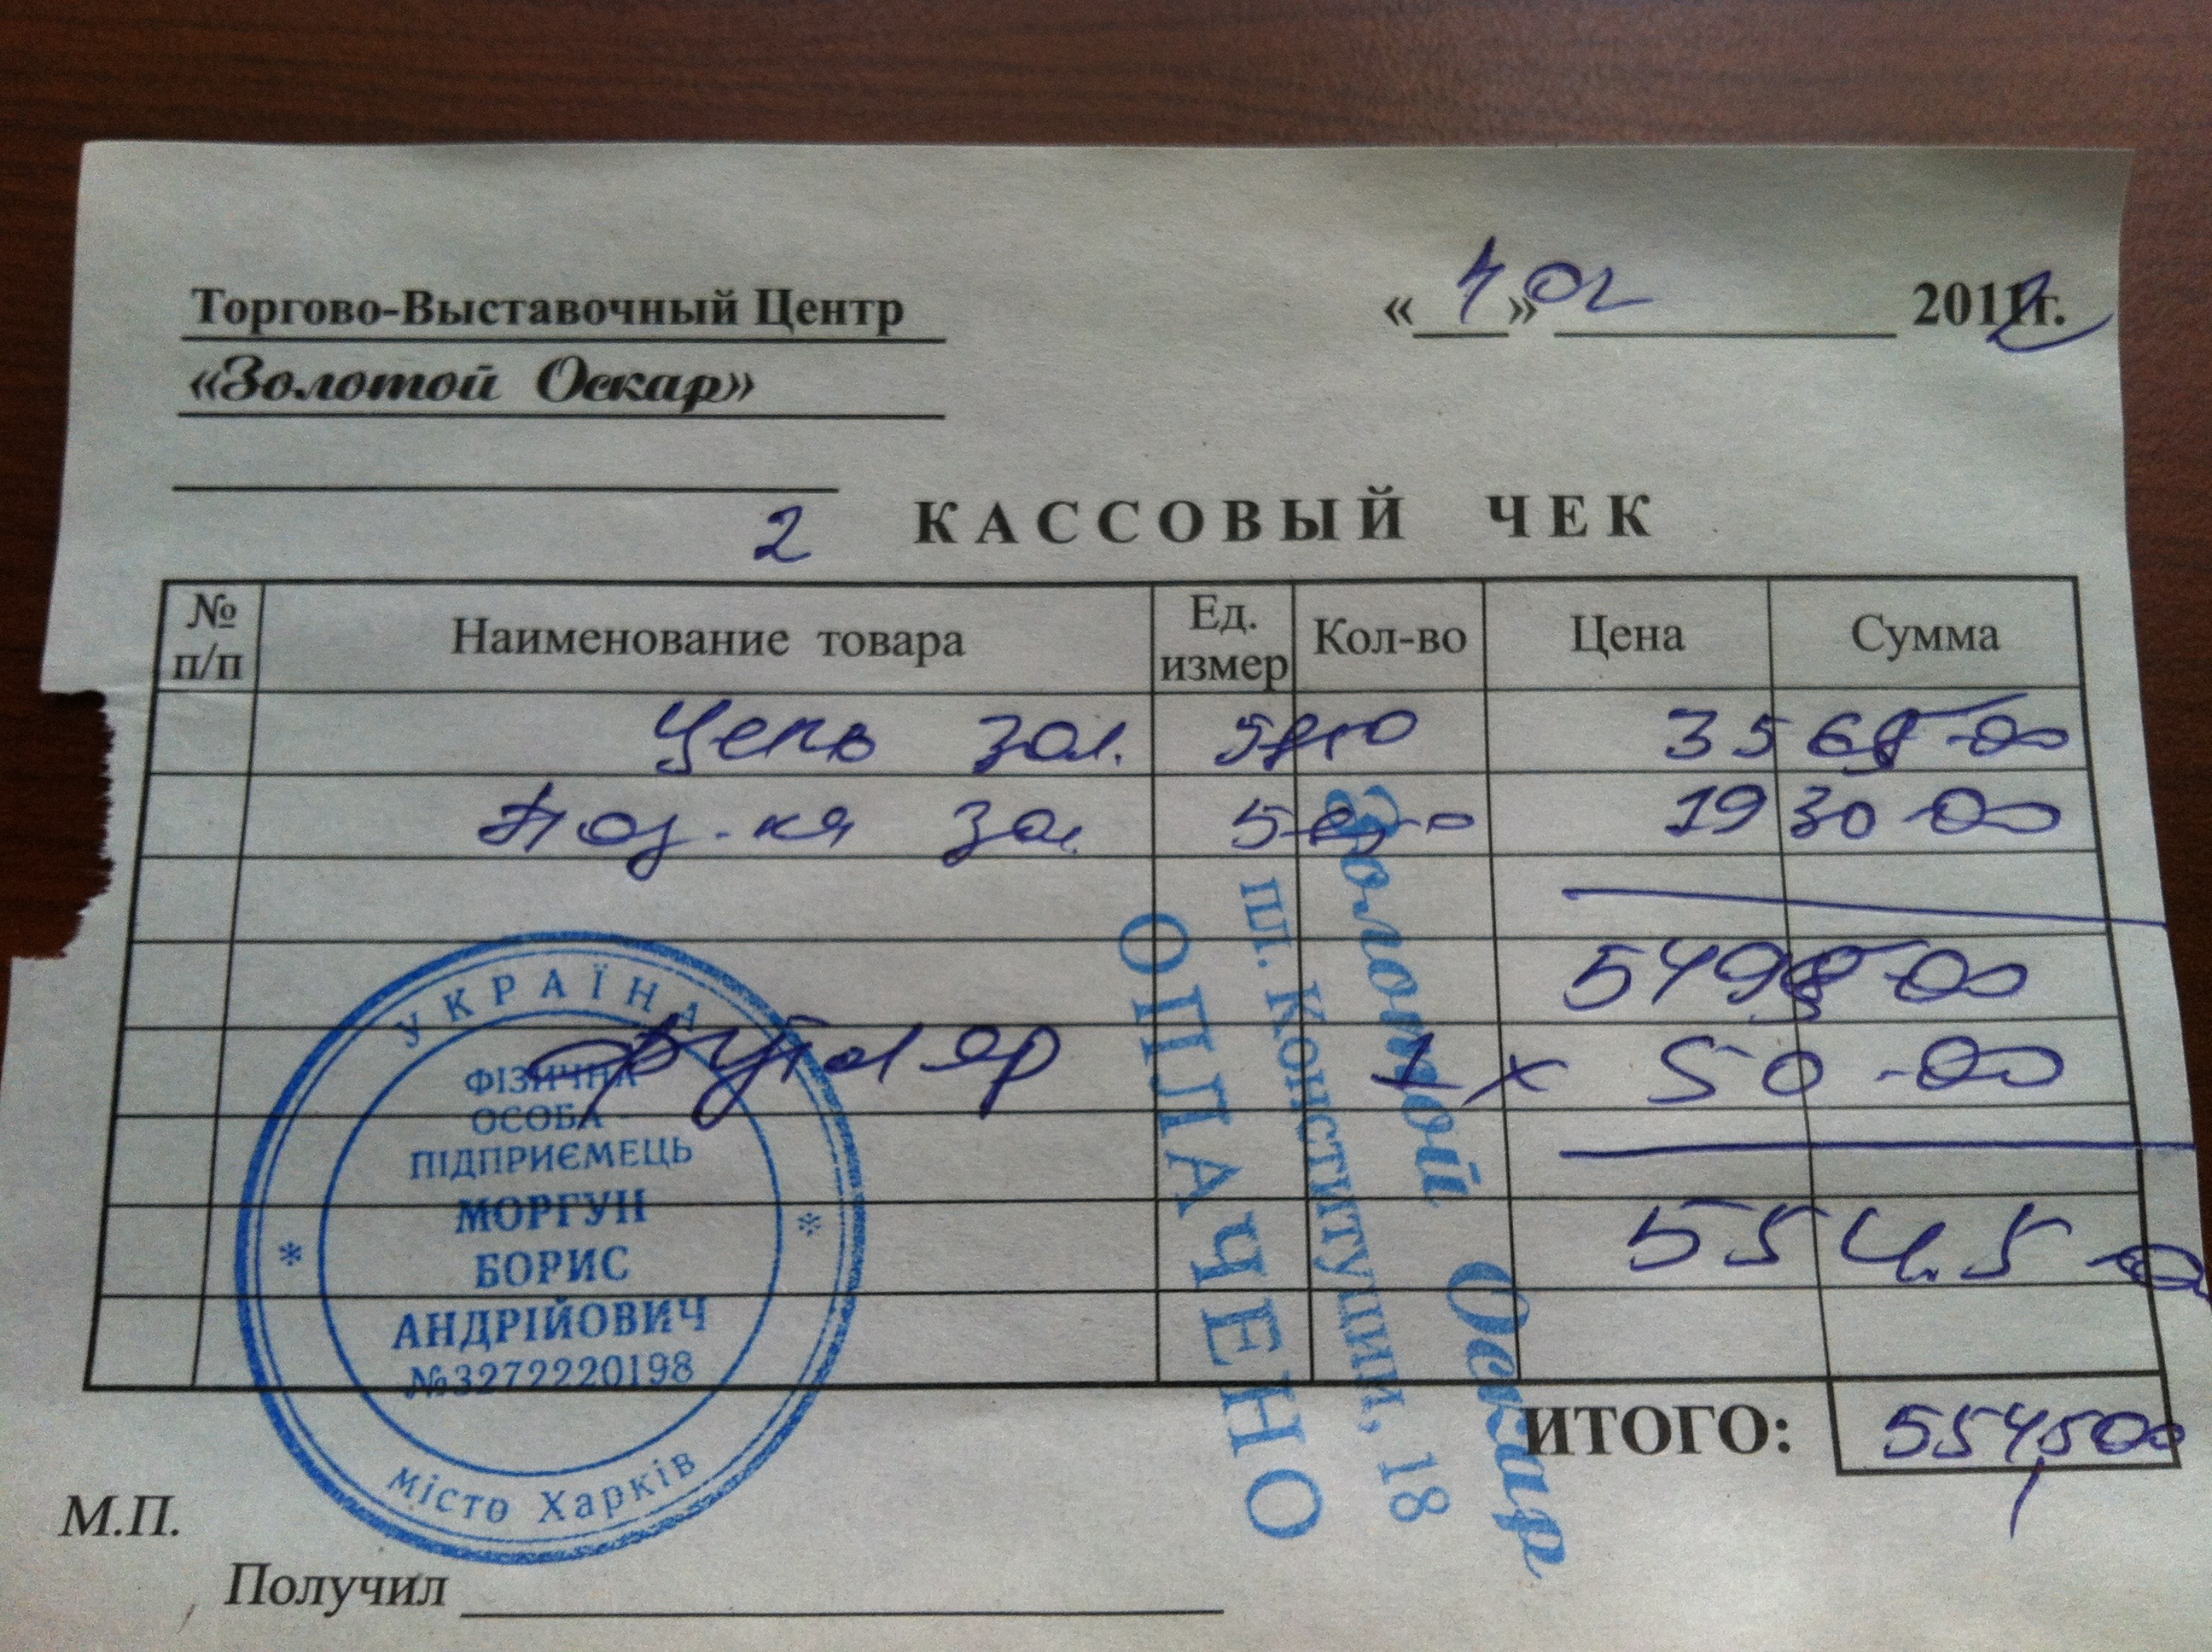 Торгово-Выставочный Центр
«Золотой Оскар»
« » 2012г.
2
КАССОВЫЙ ЧЕК
№ п/п Наименование товара Ед. измер Кол-во Цена Сумма
Цепь зол. 3565-00
зол. 1930-00
5495-00
Футляр 1 х 50-00
5545-00
ИТОГО: 5545,00
УКРАЇНА
ФІЗИЧНА
ОСОБА
ПІДПРИЄМЕЦЬ
МОРГУН
БОРИС
АНДРІЙОВИЧ
№3272220198
місто Харків
Золотой Оскар
пл. Конституции, 18
ОПЛАЧЕНО
М.П.
Получил